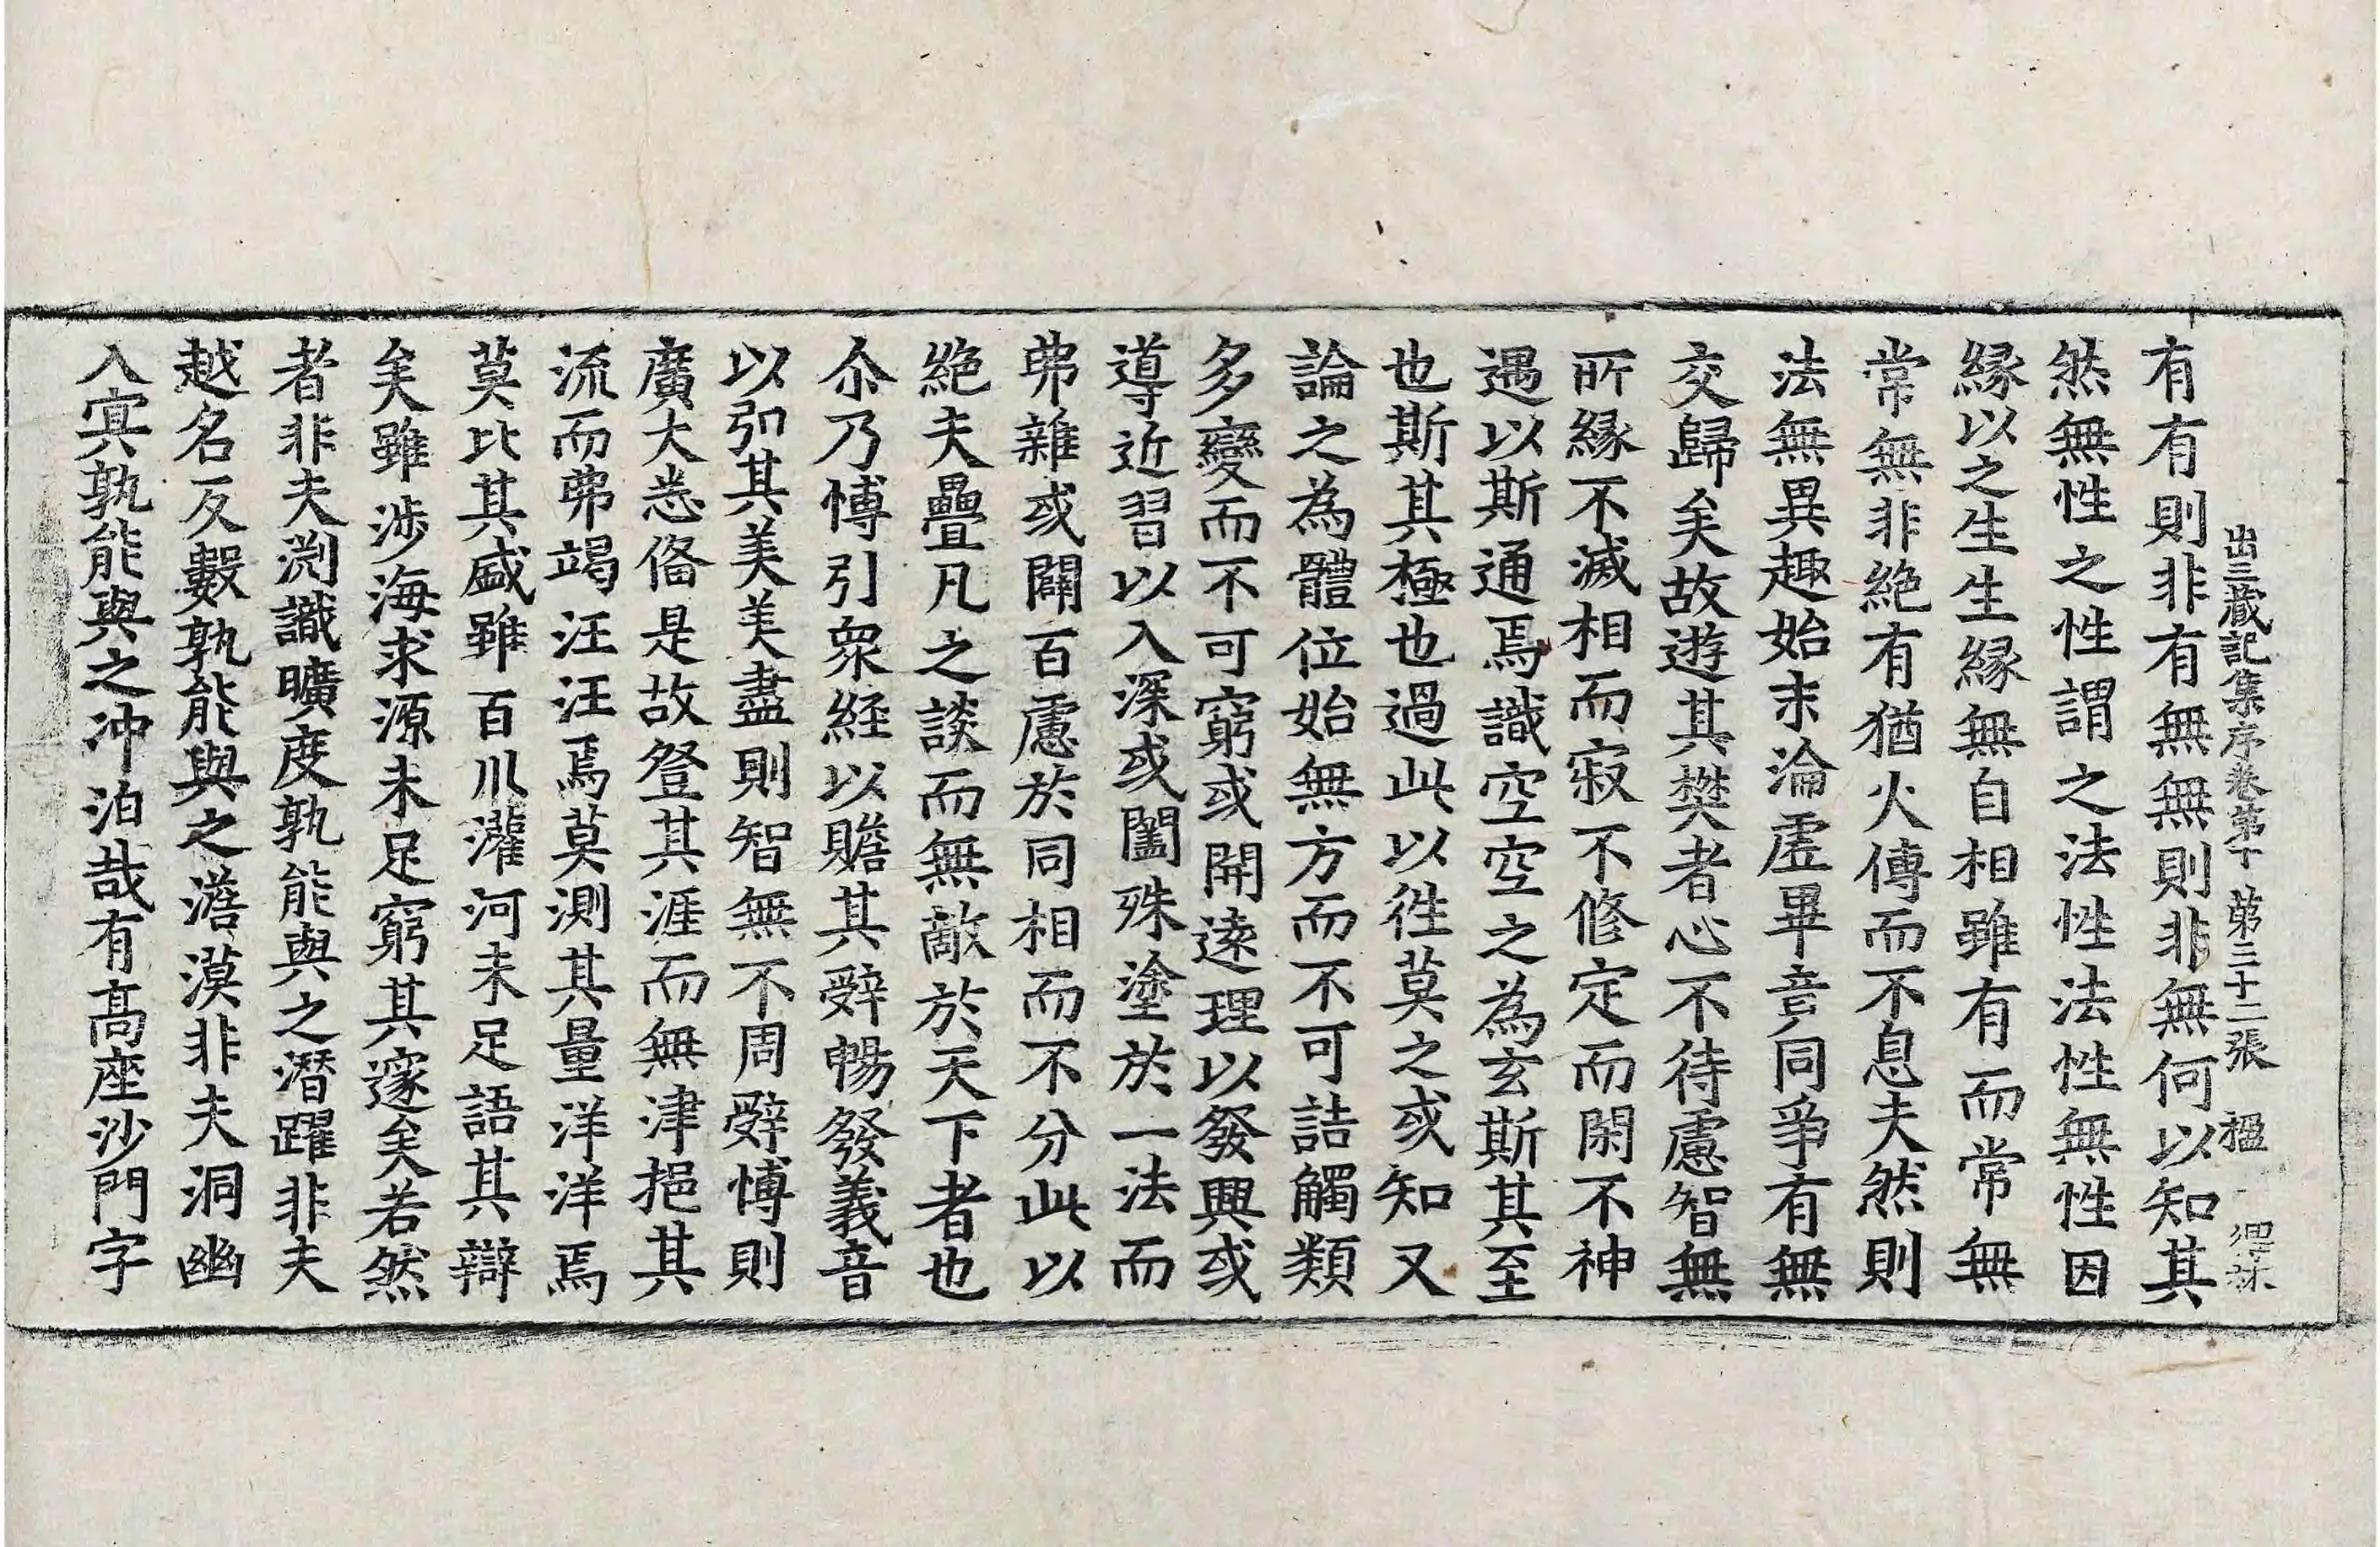 出三藏記集序卷第十 第三十二張 楹
有有則非有無無則非無何以知其
然無性之性謂之法性法性無性因
緣以之生生緣無自相雖有而常無
常無非絶有猶火傳而不息夫然則
法無異趣始末淪虛畢音同爭有無
交歸矣故遊其樊者心不待慮智無
所緣不滅相而寂不修定而閑不神
遇以斯通焉識空空之為玄斯其至
也斯其極也過此以往莫之或知又
論之為體位始無方而不可詰觸類
多變而不可窮或開遠理以發興或
導近習以入深或闔殊塗於一法而
弗雜或闢百慮於同相而不分此以
絶夫疊凡之談而無敵於天下者也
尒乃博引衆經以贍其辭暢發義音
以弘其美美盡則智無不周辭博則
廣大悉俻是故登其涯而無津挹其
流而弗竭汪汪焉莫測其量洋洋焉
莫比其盛雖百川灌河未足語其辯
矣雖涉海求源未足窮其邃矣若然
者非夫渕識曠度孰能與之潛躍非夫
越名反數孰能與之澹漠非夫洞幽
入㝠孰能與之沖泊哉有髙座沙門字